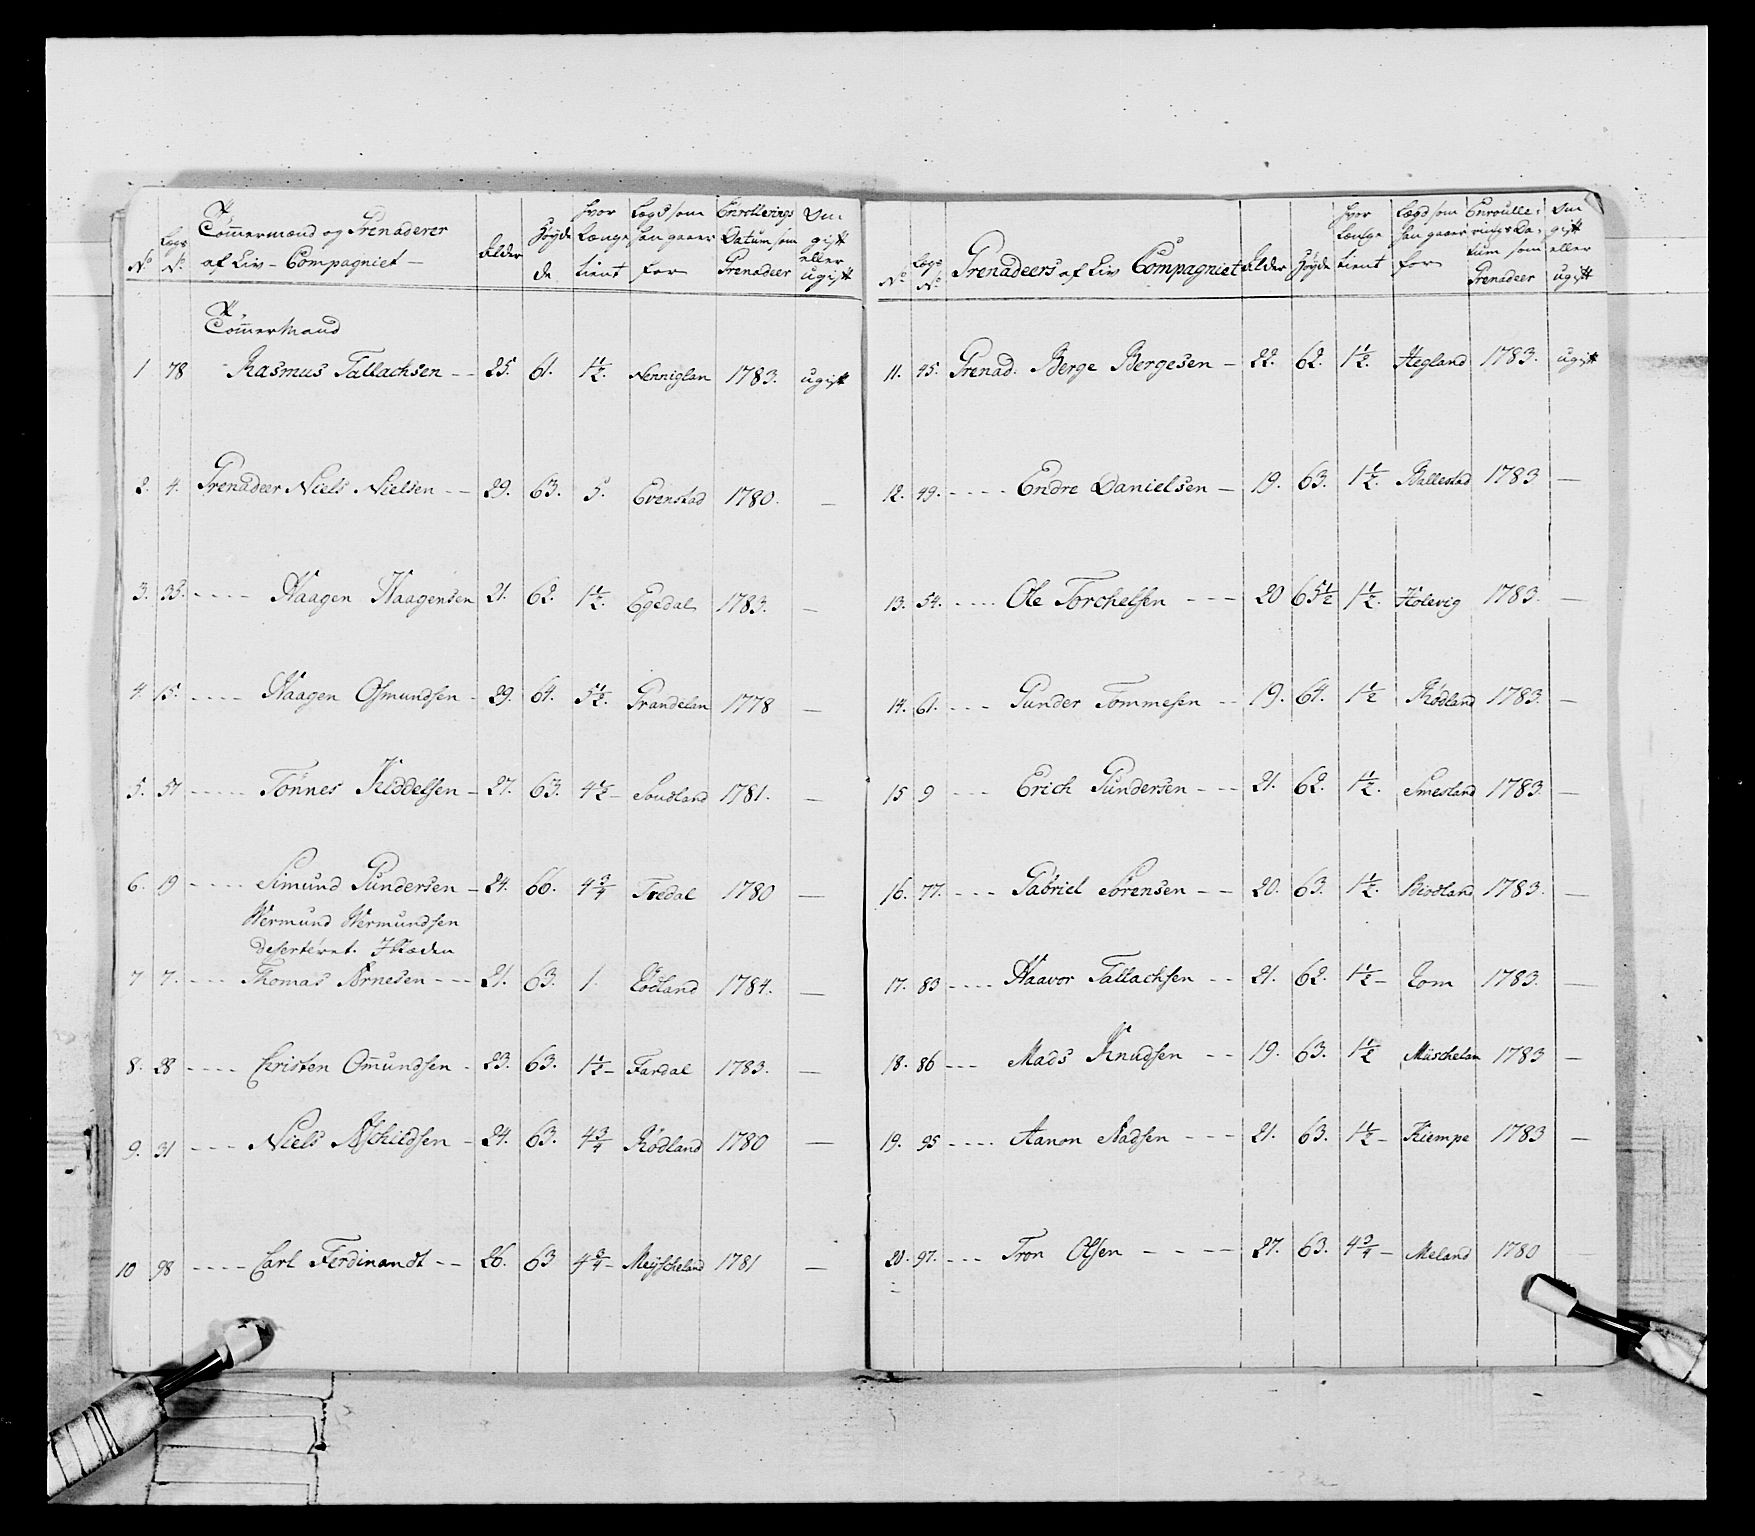 No. Legs No. Tömmermænd og Grenaderer af Liv-Compagniet- Alder Høyde hvor længe tient Legd som han gaaer for Enrollerings Datum som Grenadeer Om gift eller ugift
Tömmermand
1 78 Rasmus Tallachsen -- 25. 61. 1½. Nenniglan 1783. ugift
2. 4. Grenadeer Niels Nielsen -- 29. 63. 5. Evenstad 1780. —
3. 35. ---- Haagen Haagensen 21. 62. 1½. Egedal 1783. —
4 15. ---- Haagen Osmundsen - 29. 64. 5½. Grandelan 1778 —
5. 57 ----- Tönnes Kiddelsen - 27. 63. 4½- Soudland 1781. —
6. 19 ---- Simund Gundersen - 24. 66. 4¾ Tredal 1780 —
Wermund Wermundsen
deserteret.
7 7. ---- Thomas Arnesen --- 21. 63. 1. Rödland 1784. —
8. 28 ---- Christen Omundsen - 23. 63. 1½- Fardal 1783. —
9. 31 ---- Niels Aschildsen - 24. 63. 4¾ Rödland 1780 —
10 98 ---- Carl Ferdinandt -- 26. 63 4¾- Meyscheland 1781 —
No. Legs No. Grenadeers af Liv Compagniet Alder Høyde hvor længe tient Lægd som han gaaer for Enroullerings Datum som Grenadeer Om gift eller ugift
11. 45. Grenad. Berge Bergesen - 22. 62. 1½. Hegland 1783. ugift
12. 49. ---- Endre Danielsen - 19. 63. 1½. Ballestad 1783 —
13. 54. ---- Ole Torchelsen --- 20 65½ 1½. Holevig 1783. —
14. 61. --- Gunder Tommesen -- 19. 64. 1½ Rödland 1783. —
15 9 --- Erich Gundersen --- 21. 62. 1½. Smesland 1783. —
16. 77. --- Gabriel Sörensen -- 20. 63. 1½. Biodland 1783. —
17. 83 ---- Haavor Tallachsen -- 21. 62. 1½- Rom 1783. —
18. 86 --- Mads Knudsen -- 19. 63. 1½ Müschelan 1783 —
19. 95 ---- Aanon Aadsen --- 21. 63. 1½- Kiempe 1783 —
20. 97. --- Tron Olsen ---- 27. 63. 4¾- Meland 1780 —